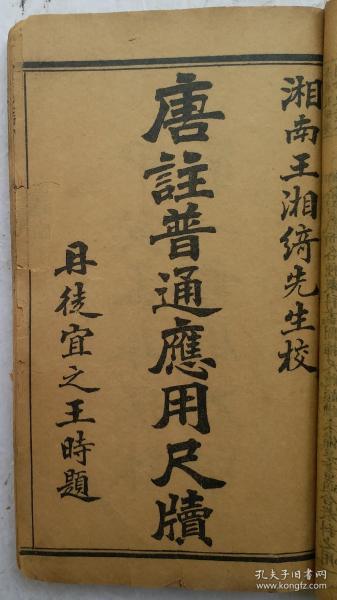 湘南王湘綺先生校
唐註普通應用尺牘
丹徒宜之王時題
孔夫子旧书网